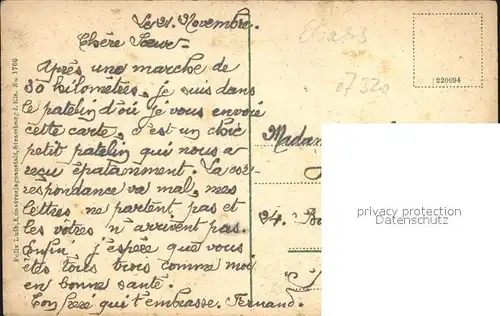 Le 21. Novembre.
Chère Sœur
Après une marche de
30 kilomètres, je suis dans
le patelin d'où je vous envoie
cette carte, c'est un chic
petit patelin qui nous a
reçu épatamment. La cor-
respondance va mal, mes
lettres ne partent pas et
les votres n'arrivent pas.
Enfin j'espère que vous
êtes tous trois comme moi
en bonne santé.
Ton frère qui t'embrasse. Fernand.
Felix Luib, Kunstverlagsanstalt, Strassburg i. Els. No. 1766
Elsass
07320
220694
Madam
94.
privacy protection